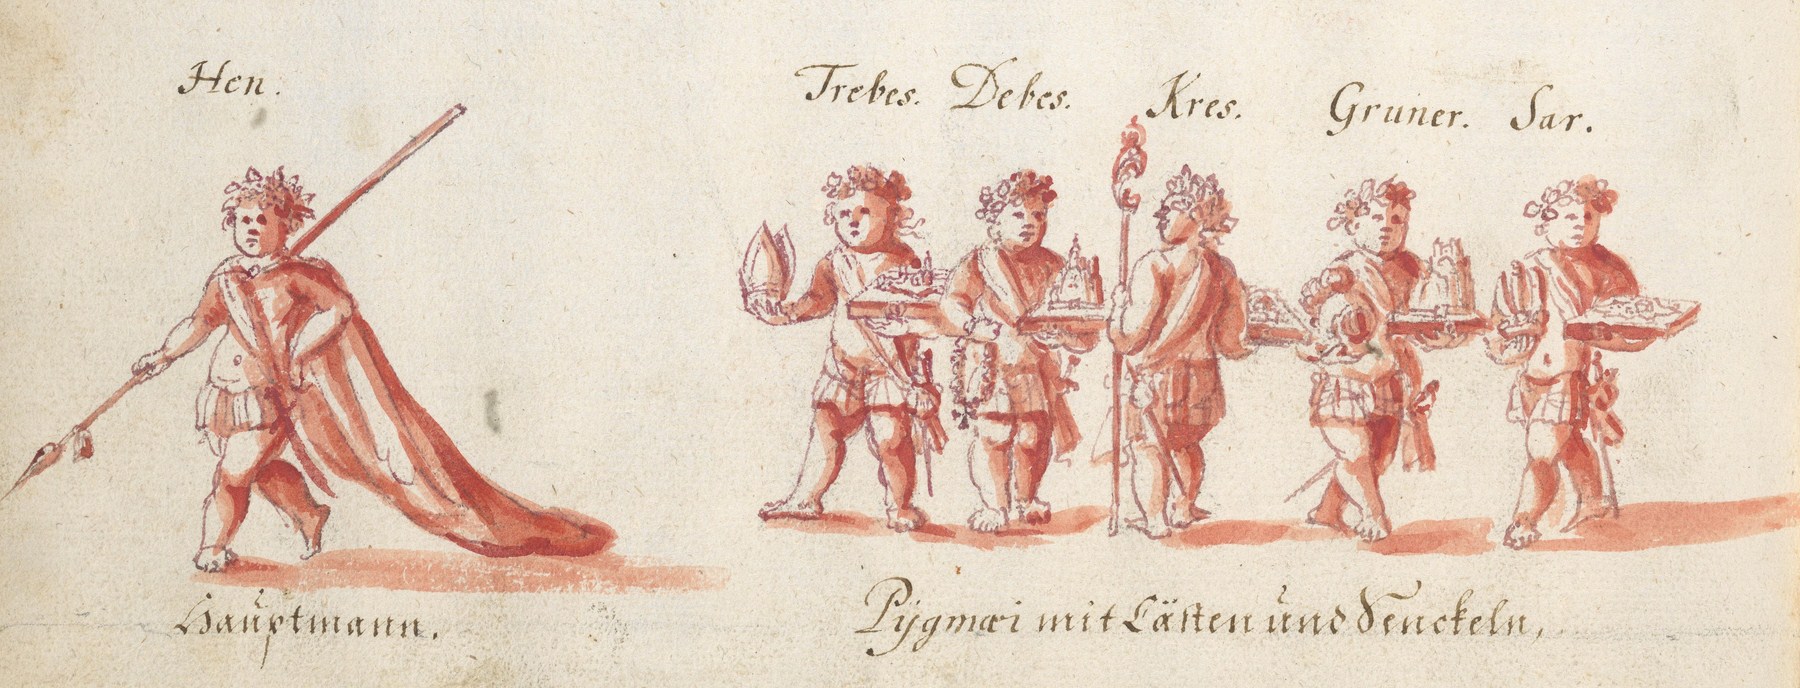 Hen. Trebes. Debes. Kres. Gruner. Sar.
Haŭptmann. Pÿgmæi mit Cästen ŭnd